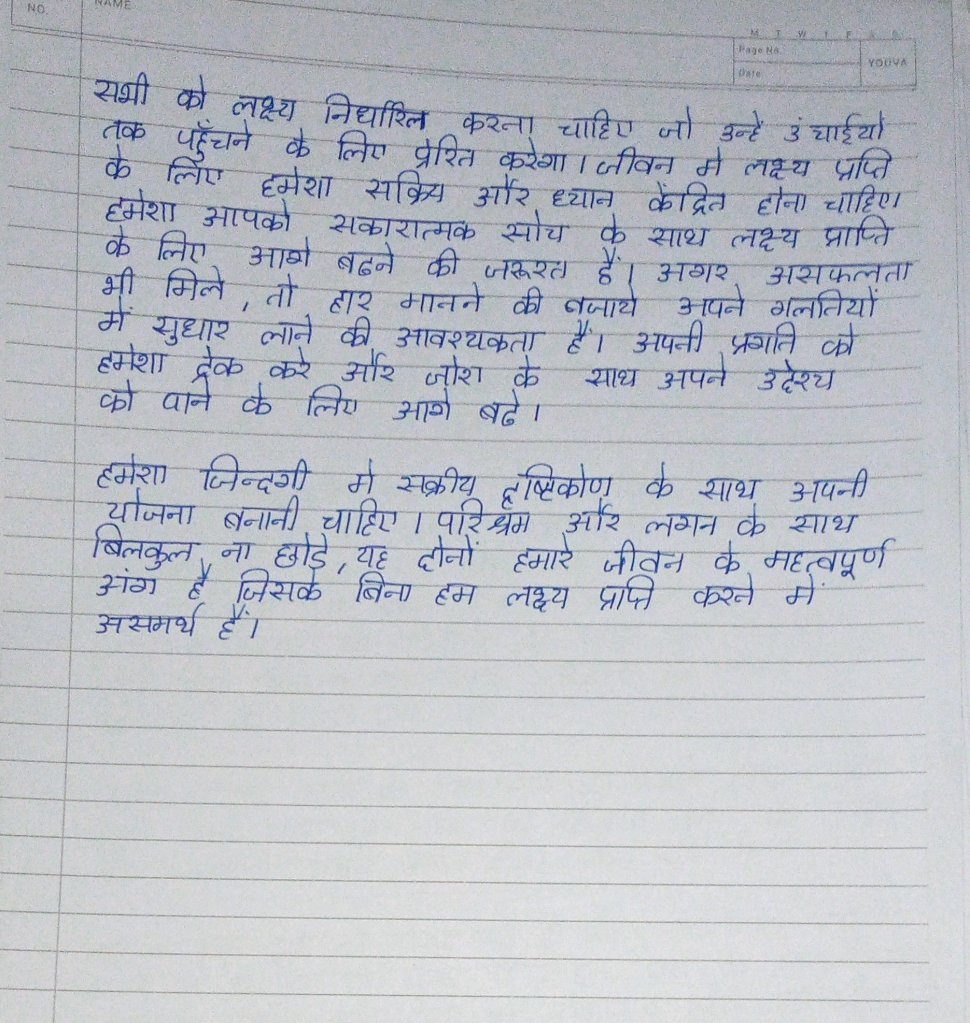 NO.
NAME
M T W T F S S
Page No.
Date
YOUVA
सभी को लक्ष्य निर्धारित करना चाहिए जो उन्हें उंचाईयो
तक पहुँचने के लिए प्रेरित करेगा। जीवन मे लक्ष्य प्राप्ति
के लिए हमेशा सक्रिय और ध्यान केंद्रित होना चाहिए।
हमेशा आपको सकारात्मक सोच के साथ लक्ष्य प्राप्ति
के लिए आगे बढने की जरूरत हैं। अगर असफलता
भी मिले, तो हार मानने की बजाये अपने गलतियों
में सुधार लाने की आवश्यकता हैं। अपनी प्रगति को
हमेशा ट्रेक करे और जोश के साथ अपने उद्देश्य
को पाने के लिए आगे बढे।
हमेशा जिन्दगी मे सक्रीय दृष्टिकोण के साथ अपनी
योजना बनानी चाहिए। परिश्रम और लगन के साथ
बिलकुल ना छोडे, यह दोनों हमारे जीवन के महत्वपूर्ण
अंग हैं जिसके बिना हम लक्ष्य प्राप्ति करने में
असमर्थ हैं।